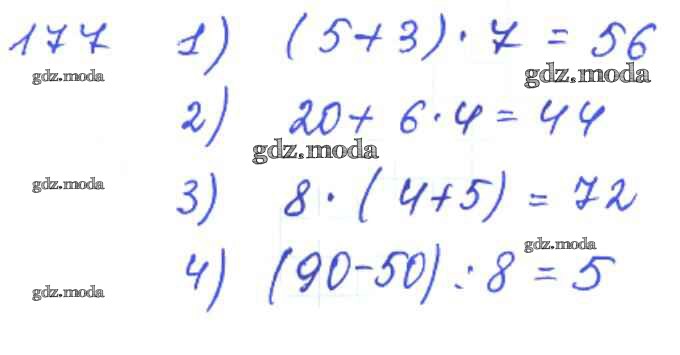 177 1) (5+3)·7=56
gdz.moda gdz.moda
2) 20+6·4=44
gdz.moda
gdz.moda 3) 8·(4+5)=72
gdz.moda
4) (90-50):8=5
gdz.moda